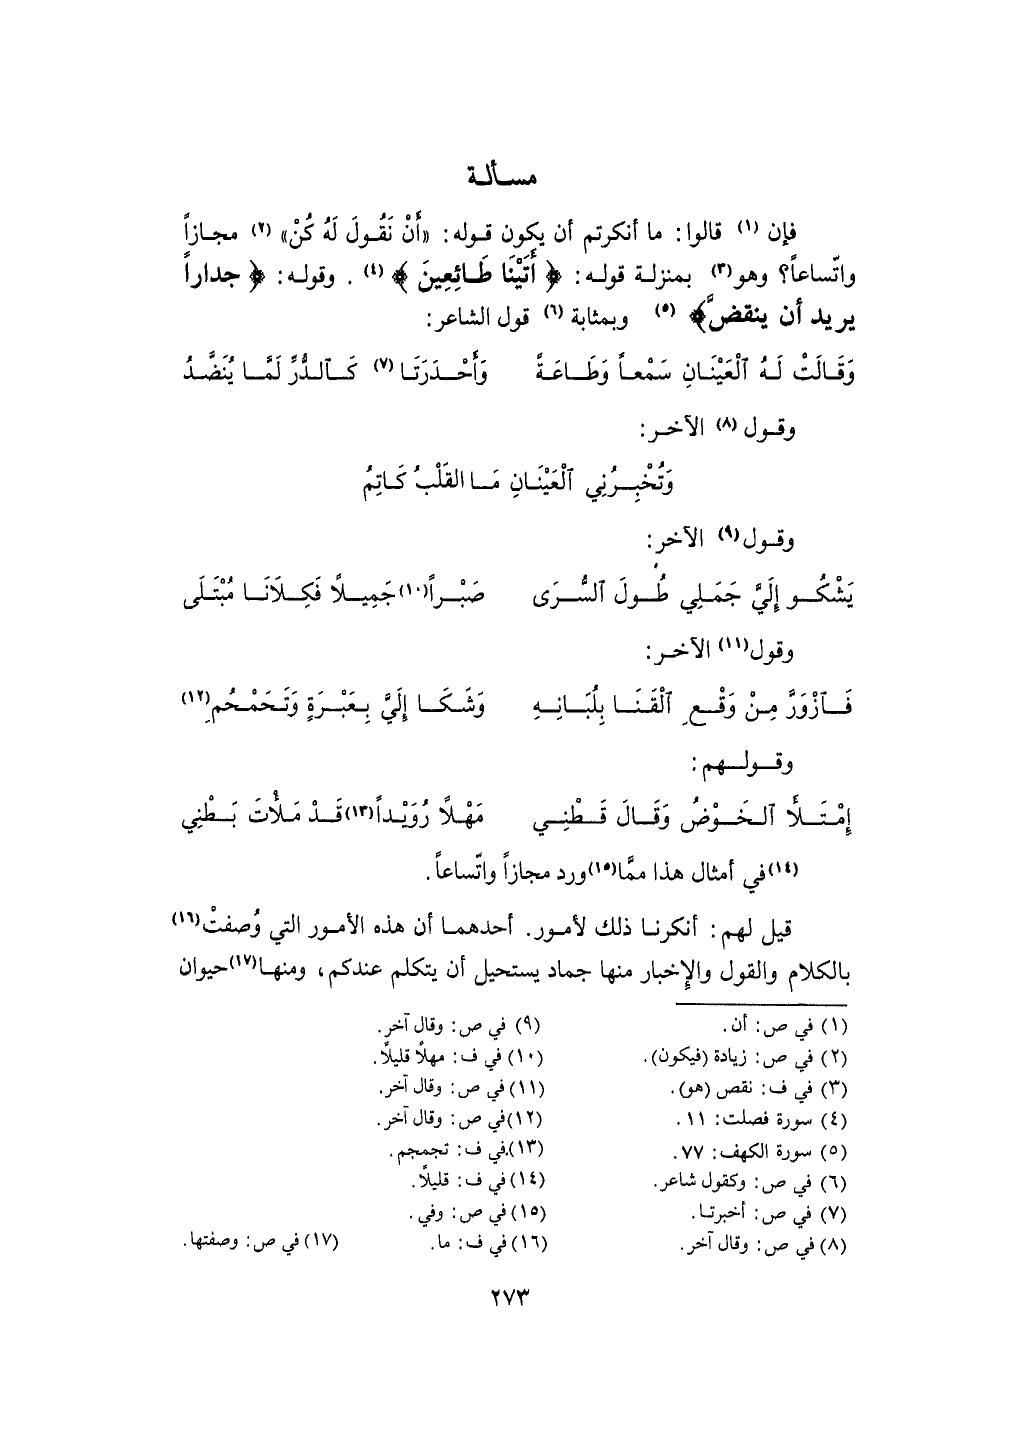 مسألة
فإن (١) قالوا: ما أنكرتم أن يكون قوله: «أَنْ نَقُولَ لَهُ كُنْ» (٢) مجازاً
واتّساعاً؟ وهو (٣) بمنزلة قوله: ﴿ أَتَيْنَا طَائِعِينَ ﴾ (٤) . وقوله: ﴿ جداراً
يريد أن ينقضَّ﴾ (٥) وبمثابة (٦) قول الشاعر:
وَقَالَتْ لَهُ ٱلْعَيْنَانِ سَمْعاً وَطَاعَةً وَأَحْدَرَتَا (٧) كَٱلدُّرِّ لَمَّا يُنَضَّدُ
وقول (٨) الآخر:
وَتُخْبِرُنِي ٱلْعَيْنَانِ مَا القَلْبُ كَاتِمُ
وقول (٩) الآخر:
يَشْكُو إِلَيَّ جَمَلِي طُولَ ٱلسُّرَى صَبْراً (١٠) جَمِيلاً فَكِلاَنَا مُبْتَلَى
وقول (١١) الآخر:
فَٱزْوَرَّ مِنْ وَقْعِ ٱلْقَنَا بِلُبَانِهِ وَشَكَا إِلَيَّ بِعَبْرَةٍ وَتَحَمْحُمِ (١٢)
وقولهم:
إِمْتَلأَ ٱلْحَوْضُ وَقَالَ قَطْنِي مَهْلاً رُوَيْداً (١٣) قَدْ مَلأْتَ بَطْنِي
(١٤) في أمثال هذا ممَّا (١٥) ورد مجازاً واتّساعاً.
قيل لهم: أنكرنا ذلك لأمور. أحدهما أن هذه الأمور التي وُصفتْ (١٦)
بالكلام والقول والإخبار منها جماد يستحيل أن يتكلم عندكم، ومنها (١٧) حيوان
(١) في ص: أن.
(٢) في ص: زيادة (فيكون).
(٣) في ف: نقص (هو).
(٤) سورة فصلت: ١١.
(٥) سورة الكهف: ٧٧.
(٦) في ص: وكقول شاعر.
(٧) في ص: أخبرتا.
(٨) في ص: وقال آخر.
(٩) في ص: وقال آخر.
(١٠) في ف: مهلاً قليلاً.
(١١) في ص: وقال آخر.
(١٢) في ص: وقال آخر.
(١٣) في ف: تجمجم.
(١٤) في ف: قليلاً.
(١٥) في ص: وفي.
(١٦) في ف: ما.
(١٧) في ص: وصفتها.
٢٧٣